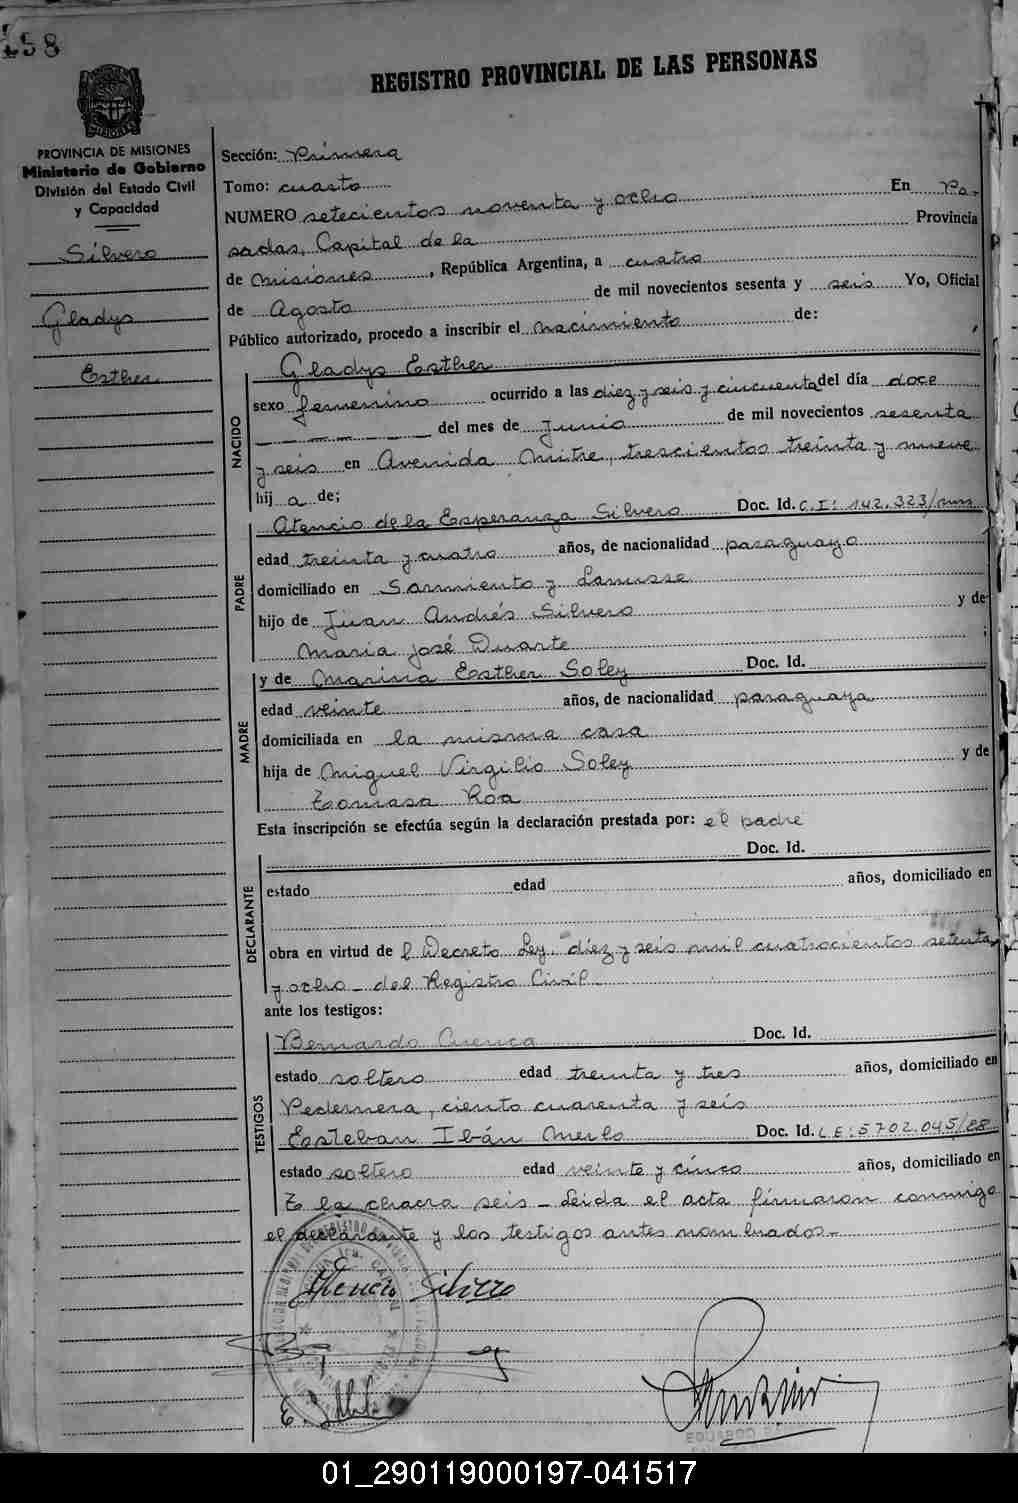 258
REGISTRO PROVINCIAL DE LAS PERSONAS
PROVINCIA DE MISIONES
Ministerio de Gobierno
División del Estado Civil
y Capacidad
Silvero
Gladys
Esther
Sección: Primera
Tomo: cuarto
NUMERO setecientos noventa y ocho En Po-
sadas, Capital de la Provincia
de Misiones, República Argentina, a cuatro
de Agosto de mil novecientos sesenta y seis Yo, Oficial
Público autorizado, procedo a inscribir el nacimiento de:
NACIDO
Gladys Esther
sexo femenino ocurrido a las diez y seis y cincuenta del día doce
del mes de Junio de mil novecientos sesenta
y seis en Avenida Mitre, trescientos treinta y nueve
hij a de:
PADRE
Atencio de la Esperanza Silvero Doc. Id. C.I: 142.323/
edad treinta y cuatro años, de nacionalidad paraguayo
domiciliado en Sarmiento y Lanusse
hijo de Juan Andrés Silvero y de
María José Duarte ;
MADRE
y de Marina Esther Soley Doc. Id.
edad veinte años, de nacionalidad paraguaya
domiciliada en la misma casa
hija de Miguel Virgilio Soley y de
Tomasa Roa
Esta inscripción se efectúa según la declaración prestada por: el padre
DECLARANTE
Doc. Id.
estado edad años, domiciliado en
obra en virtud de l Decreto Ley. diez y seis mil cuatrocientos setenta
y ocho - del Registro Civil-
ante los testigos:
TESTIGOS
Bernardo Cuenca Doc. Id.
estado soltero edad treinta y tres años, domiciliado en
Pedernera, ciento cuarenta y seis
Esteban Ibán Merlo Doc. Id. L.E: 5702.045/88
estado soltero edad veinte y cinco años, domiciliado en
la chacra seis - Leida el acta firmaron conmigo
el declarante y los testigos antes nombrados-
Atencio Silvero
EDUARDO
01_290119000197-041517